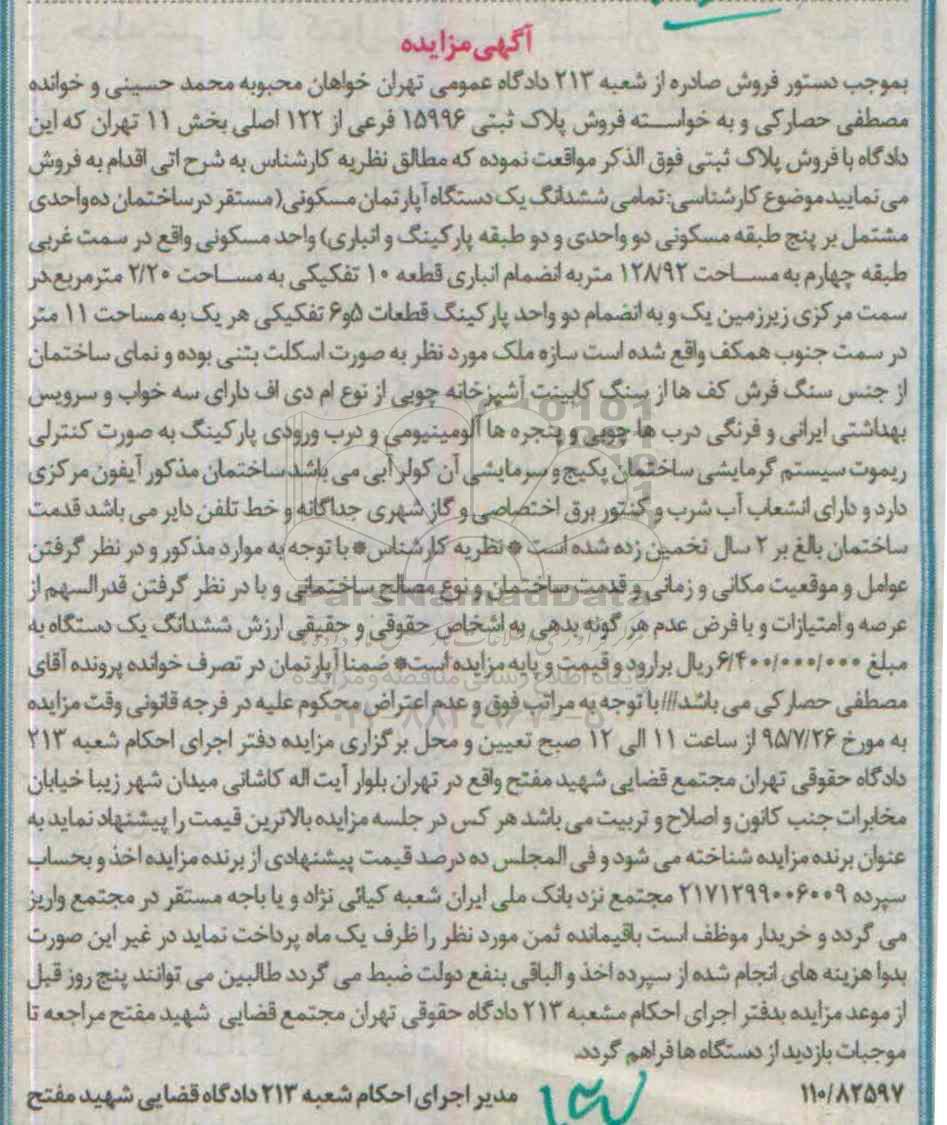 آگهی مزایده
بموجب دستور فروش صادره از شعبه ۲۱۳ دادگاه عمومی تهران خواهان محبوبه محمد حسینی و خوانده
مصطفی حصارکی و به خواسته فروش پلاک ثبتی ۱۵۹۹۶ فرعی از ۱۲۲ اصلی بخش ۱۱ تهران که این
دادگاه با فروش پلاک ثبتی فوق الذکر مواقعت نموده که مطالق نظریه کارشناس به شرح اتی اقدام به فروش
می نمایید موضوع کارشناسی: تمامی ششدانگ یک دستگاه آپارتمان مسکونی( مستقر در ساختمان ده واحدی
مشتمل بر پنج طبقه مسکونی دو واحدی و دو طبقه پارکینگ و انباری) واحد مسکونی واقع در سمت غربی
طبقه چهارم به مساحت ۱۲۸/۹۲ متر به انضمام انباری قطعه ۱۰ تفکیکی به مساحت ۲/۲۰ مترمربع در
سمت مرکزی زیرزمین یک و به انضمام دو واحد پارکینگ قطعات ۵و۶ تفکیکی هر یک به مساحت ۱۱ متر
در سمت جنوب همکف واقع شده است سازه ملک مورد نظر به صورت اسکلت بتنی بوده و نمای ساختمان
از جنس سنگ فرش کف ها از سنگ کابینت آشپزخانه چوبی از نوع ام دی اف دارای سه خواب و سرویس
بهداشتی ایرانی و فرنگی درب ها چوبی و پنجره ها آلومینیومی و درب ورودی پارکینگ به صورت کنترلی
ریموت سیستم گرمایشی ساختمان پکیج و سرمایشی آن کولر آبی می باشد ساختمان مذکور آیفون مرکزی
دارد و دارای انشعاب آب شرب و کنتور برق اختصاصی و گاز شهری جداگانه و خط تلفن دایر می باشد قدمت
ساختمان بالغ بر ۲ سال تخمین زده شده است * نظریه کارشناس* با توجه به موارد مذکور و در نظر گرفتن
عوامل و موقعیت مکانی و زمانی و قدمت ساختمان و نوع مصالح ساختمانی و با در نظر گرفتن قدرالسهم از
عرصه و امتیازات و با فرض عدم هر گونه بدهی به اشخاص حقوقی و حقیقی ارزش ششدانگ یک دستگاه به
مبلغ ۶/۴۰۰/۰۰۰/۰۰۰ ریال برارود و قیمت و پایه مزایده است* ضمنا آپارتمان در تصرف خوانده پرونده آقای
مصطفی حصارکی می باشد/// با توجه به مراتب فوق و عدم اعتراض محکوم علیه در فرجه قانونی وقت مزایده
به مورخ ۹۵/۷/۲۶ از ساعت ۱۱ الی ۱۲ صبح تعیین و محل برگزاری مزایده دفتر اجرای احکام شعبه ۲۱۳
دادگاه حقوقی تهران مجتمع قضایی شهید مفتح واقع در تهران بلوار آیت اله کاشانی میدان شهر زیبا خیابان
مخابرات جنب کانون و اصلاح و تربیت می باشد هر کس در جلسه مزایده بالاترین قیمت را پیشنهاد نماید به
عنوان برنده مزایده شناخته می شود و فی المجلس ده درصد قیمت پیشنهادی از برنده مزایده اخذ و بحساب
سپرده ۲۱۷۱۲۹۹۰۰۶۰۰۹ مجتمع نزد بانک ملی ایران شعبه کیائی نژاد و یا باجه مستقر در مجتمع واریز
می گردد و خریدار موظف است باقیمانده ثمن مورد نظر را ظرف یک ماه پرداخت نماید در غیر این صورت
بدوا هزینه های انجام شده از سپرده اخذ و الباقی بنفع دولت ضبط می گردد طالبین می توانند پنج روز قبل
از موعد مزایده بدفتر اجرای احکام مشعبه ۲۱۳ دادگاه حقوقی تهران مجتمع قضایی شهید مفتح مراجعه تا
موجبات بازدید از دستگاه ها فراهم گردد.
۱۱۰/۸۲۵۹۷ مدیر اجرای احکام شعبه ۲۱۳ دادگاه قضایی شهید مفتح
ParsNamadData